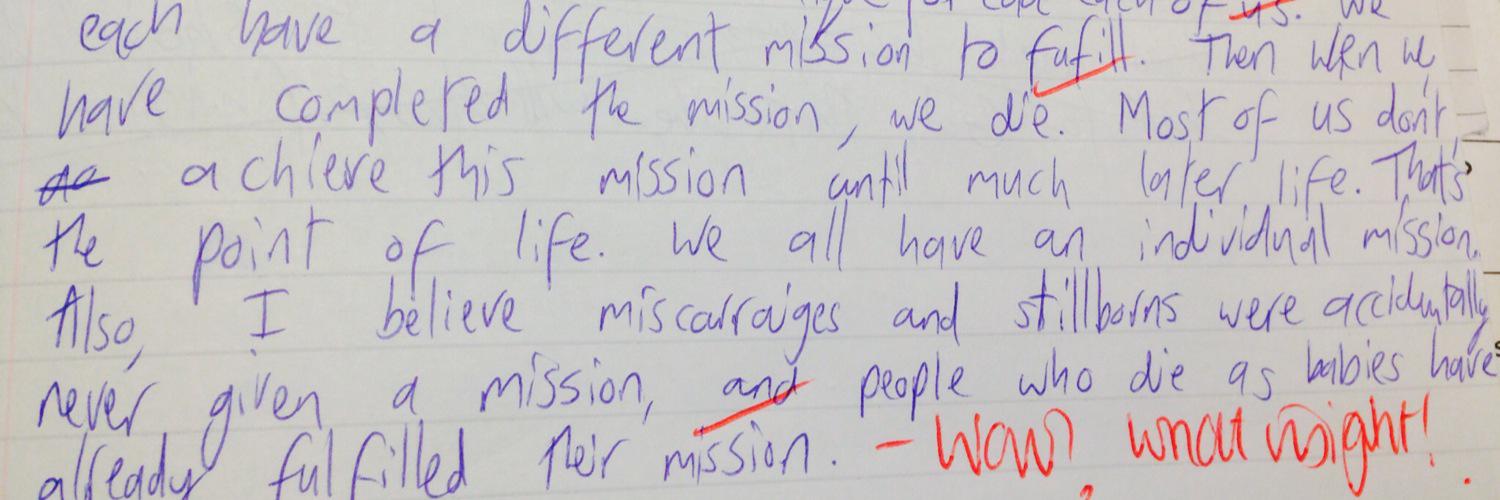 each of us. We
each have a different mission to fufill. Then when we
have completed the mission, we die. Most of us don't
achieve this mission until much later life. That's
the point of life. We all have an individual mission.
Also, I believe miscarraiges and stillborns were accidentally
never given a mission, and people who die as babies have
already fulfilled their mission. - Wow! what insight!